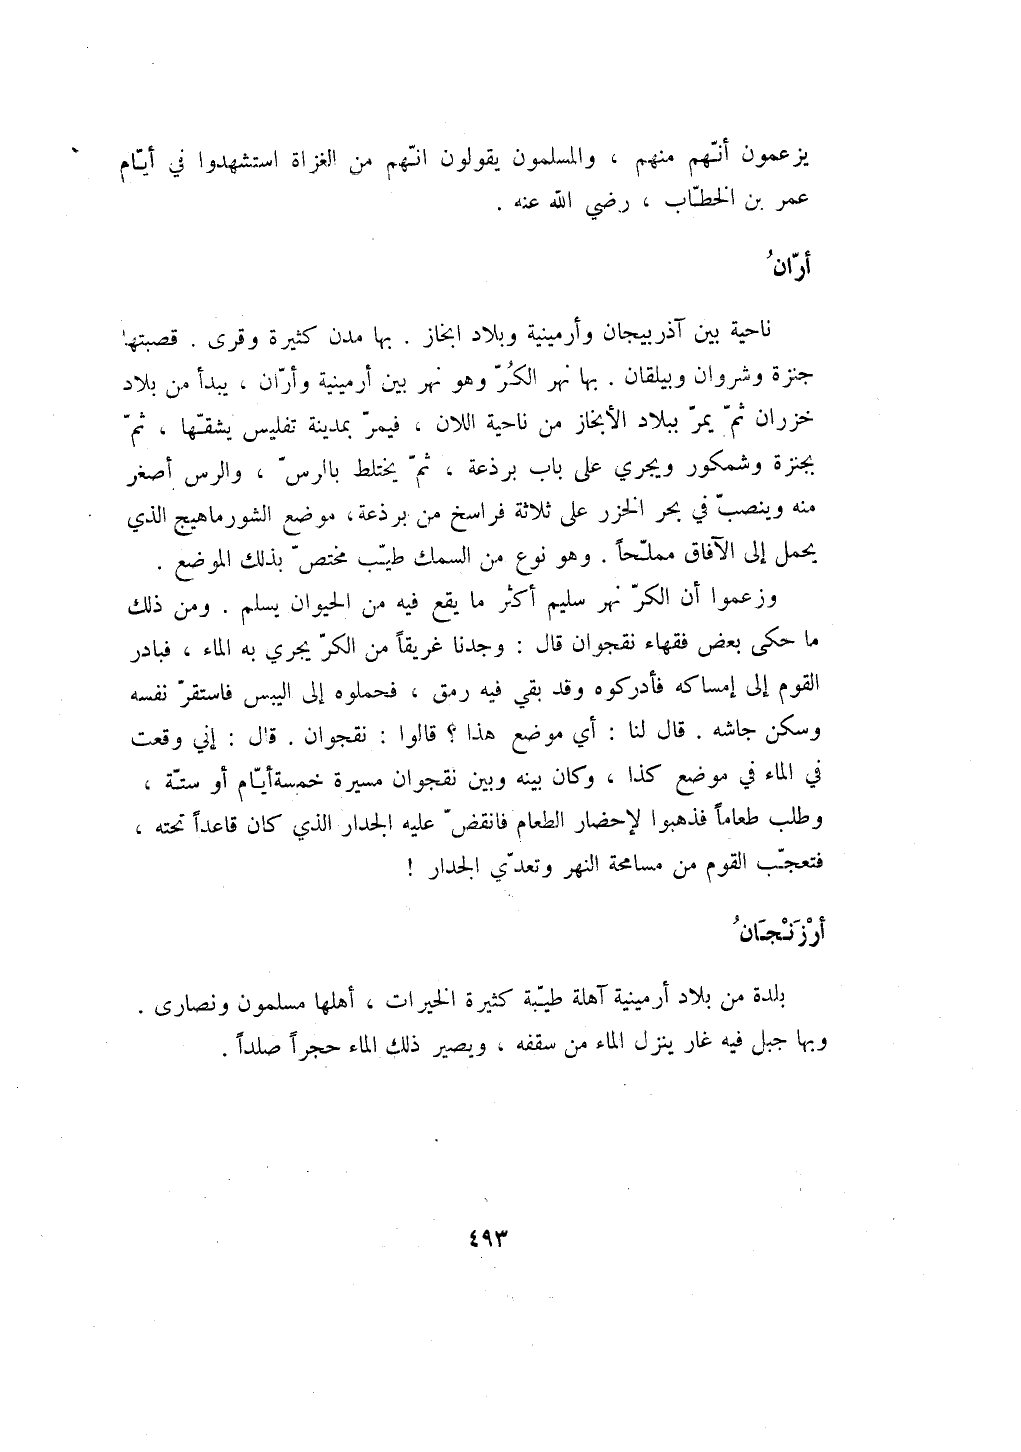 يزعمون أنّهم منهم ، والمسلمون يقولون انّهم من الغزاة استشهدوا في أيّام
عمر بن الخطّاب ، رضي الله عنه .
أرّانُ
ناحية بين آذربيجان وأرمينية وبلاد ابخاز . بها مدن كثيرة وقرى . قصبتها
جنزة وشروان وبيلقان . بها نهر الكُرّ وهو نهر بين أرمينية وأرّان ، يبدأ من بلاد
خزران ثمّ يمرّ ببلاد الأبخاز من ناحية اللان ، فيمرّ بمدينة تفليس يشقّها ، ثمّ
بجنزة وشمكور ويجري على باب برذعة ، ثمّ يختلط بالرسّ ، والرس أصغر
منه وينصبّ في بحر الخزر على ثلاثة فراسخ من برذعة، موضع الشورماهيج الذي
يحمل إلى الآفاق مملّحاً . وهو نوع من السمك طيّب مختصّ بذلك الموضع .
وزعموا أن الكرّ نهر سليم أكثر ما يقع فيه من الحيوان يسلم . ومن ذلك
ما حكى بعض فقهاء نقجوان قال : وجدنا غريقاً من الكرّ يجري به الماء ، فبادر
القوم إلى إمساكه فأدركوه وقد بقي فيه رمق ، فحملوه إلى اليبس فاستقرّ نفسه
وسكن جاشه . قال لنا : أي موضع هذا ؟ قالوا : نقجوان . قال : إني وقعت
في الماء في موضع كذا ، وكان بينه وبين نقجوان مسيرة خمسة أيّام أو ستّة ،
وطلب طعاماً فذهبوا لإحضار الطعام فانقضّ عليه الجدار الذي كان قاعداً تحته ،
فتعجّب القوم من مسامحة النهر وتعدّي الجدار !
أرْزَنْجَانُ
بلدة من بلاد أرمينية آهلة طيّبة كثيرة الخيرات ، أهلها مسلمون ونصارى .
وبها جبل فيه غار ينزل الماء من سقفه ، ويصير ذلك الماء حجراً صلداً .
٤٩٣